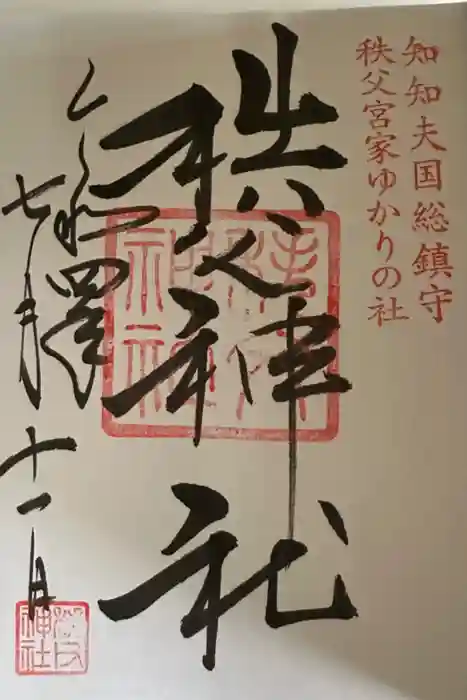 知知夫国総鎮守
秩父宮家ゆかりの社
秩父神社
七月十一日
秩父神社